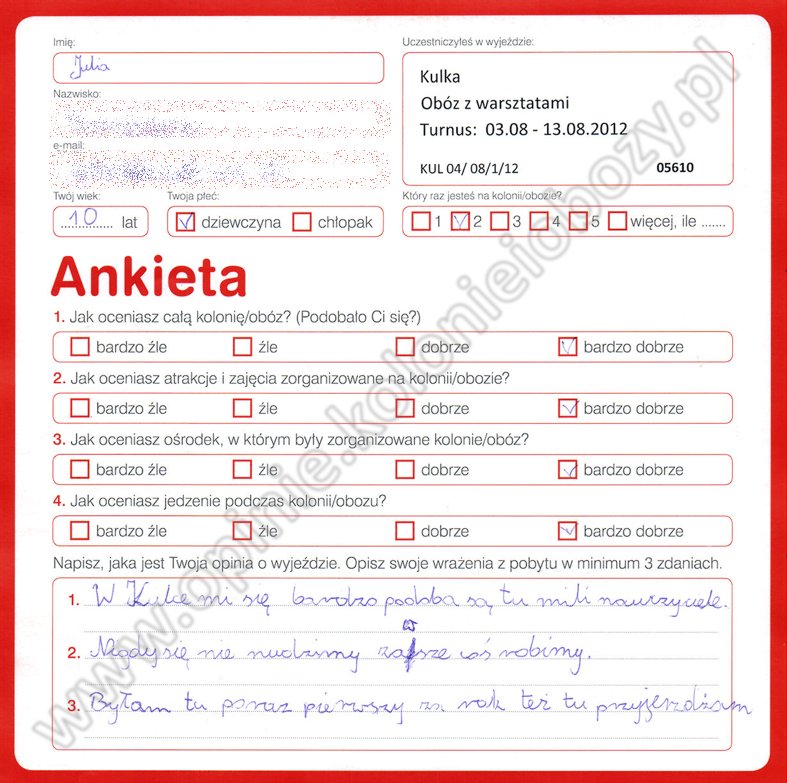 Imię:
Julia
Uczestniczyłeś w wyjeździe:
Kulka
Obóz z warsztatami
Turnus: 03.08 - 13.08.2012
KUL 04/ 08/1/12 05610
Nazwisko:
e-mail:
Twój wiek:
10 lat
Twoja płeć:
dziewczyna chłopak
Który raz jesteś na kolonii/obozie?
1 2 3 4 5 więcej, ile .......
Ankieta
1. Jak oceniasz całą kolonię/obóz? (Podobało Ci się?)
bardzo źle źle dobrze bardzo dobrze
2. Jak oceniasz atrakcje i zajęcia zorganizowane na kolonii/obozie?
bardzo źle źle dobrze bardzo dobrze
3. Jak oceniasz ośrodek, w którym były zorganizowane kolonie/obóz?
bardzo źle źle dobrze bardzo dobrze
4. Jak oceniasz jedzenie podczas kolonii/obozu?
bardzo źle źle dobrze bardzo dobrze
Napisz, jaka jest Twoja opinia o wyjeździe. Opisz swoje wrażenia z pobytu w minimum 3 zdaniach.
1. W Kulce mi się bardzo podoba są tu mili nauczyciele.
2. Nigdy się nie nudzimy zawsze coś robimy.
3. Byłam tu poraz pierwszy za rok też tu przyjerzdżam
www.opinie.kolonieiobozy.pl